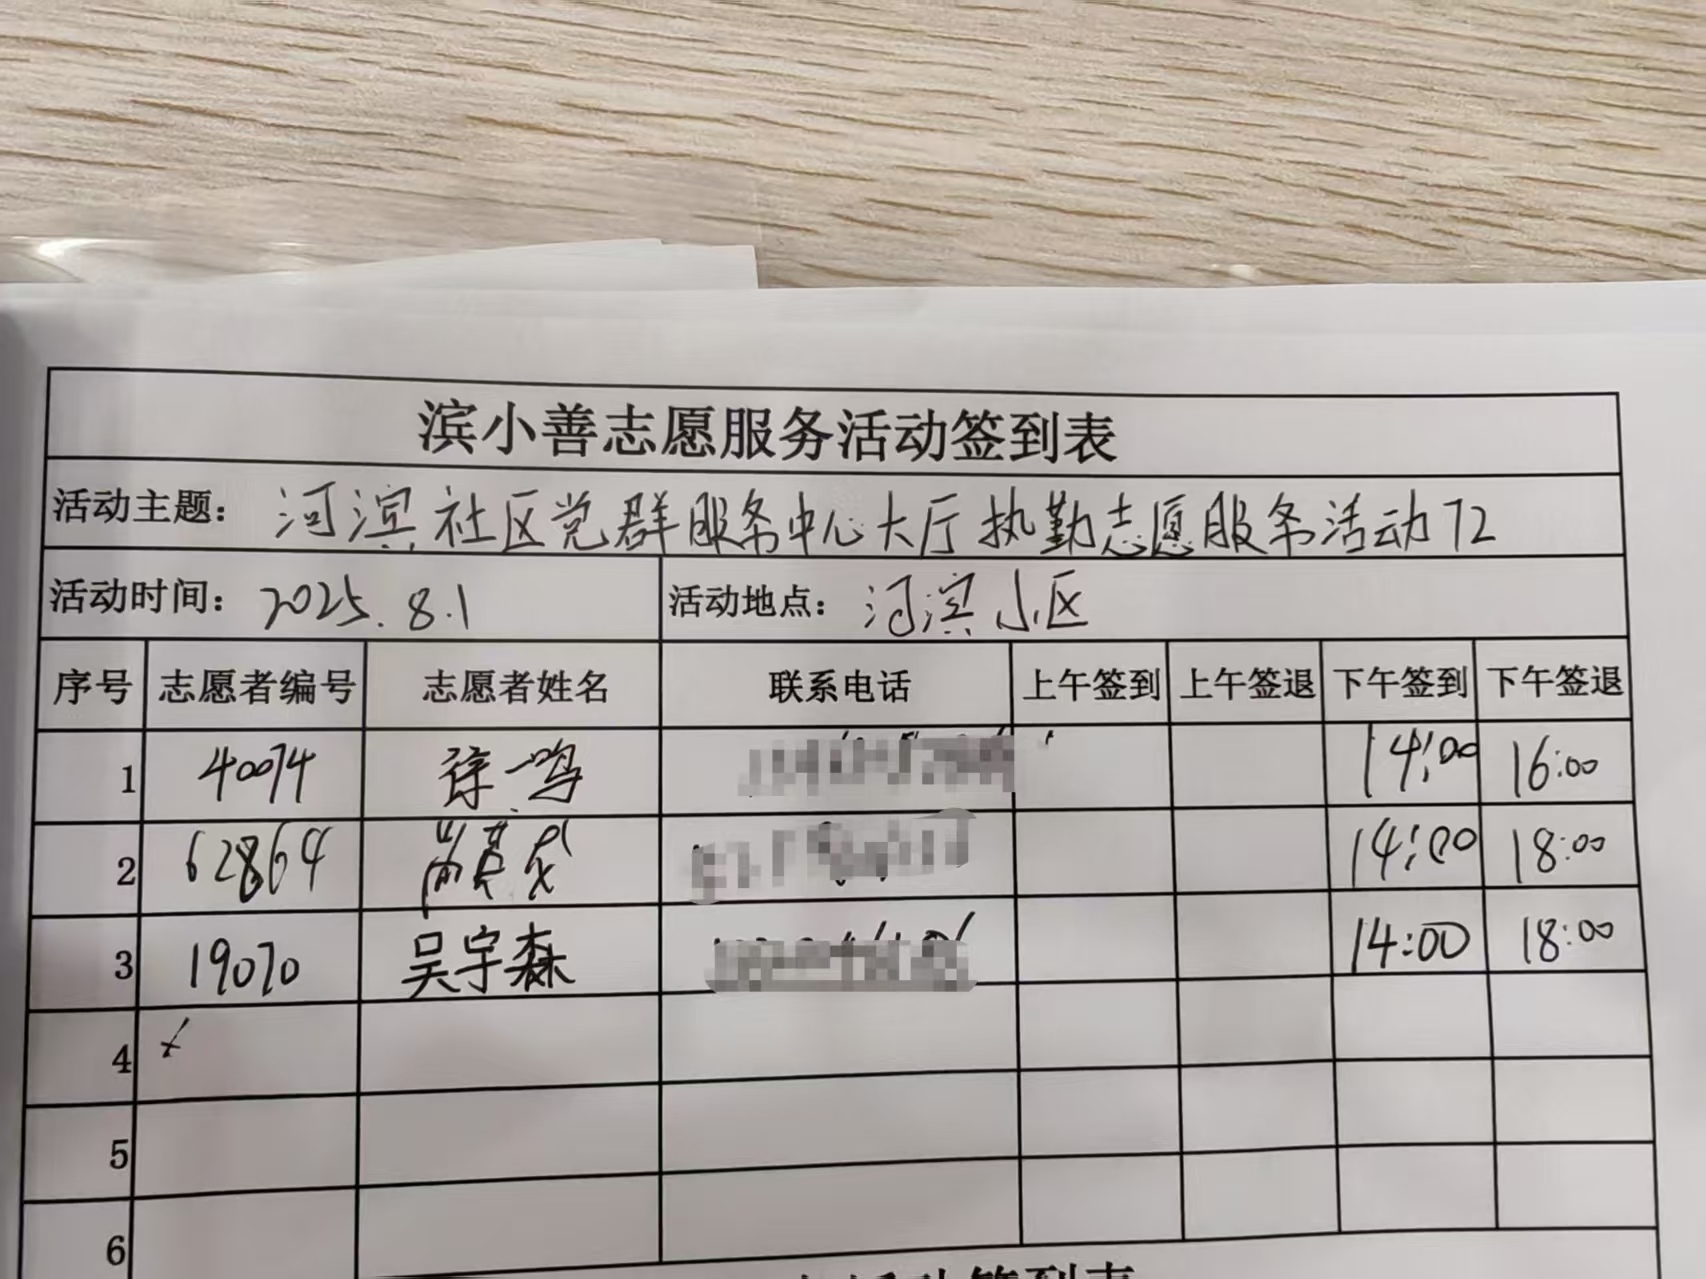 滨小善志愿服务活动签到表
活动主题: 河滨社区党群服务中心大厅执勤志愿服务活动72
活动时间: 2025.8.1 活动地点: 河滨小区
序号 志愿者编号 志愿者姓名 联系电话 上午签到 上午签退 下午签到 下午签退
1 40074 徐一鸣 14:00 16:00
2 62864 14:00 18:00
3 19070 吴宇森 14:00 18:00
4
5
6
签到表